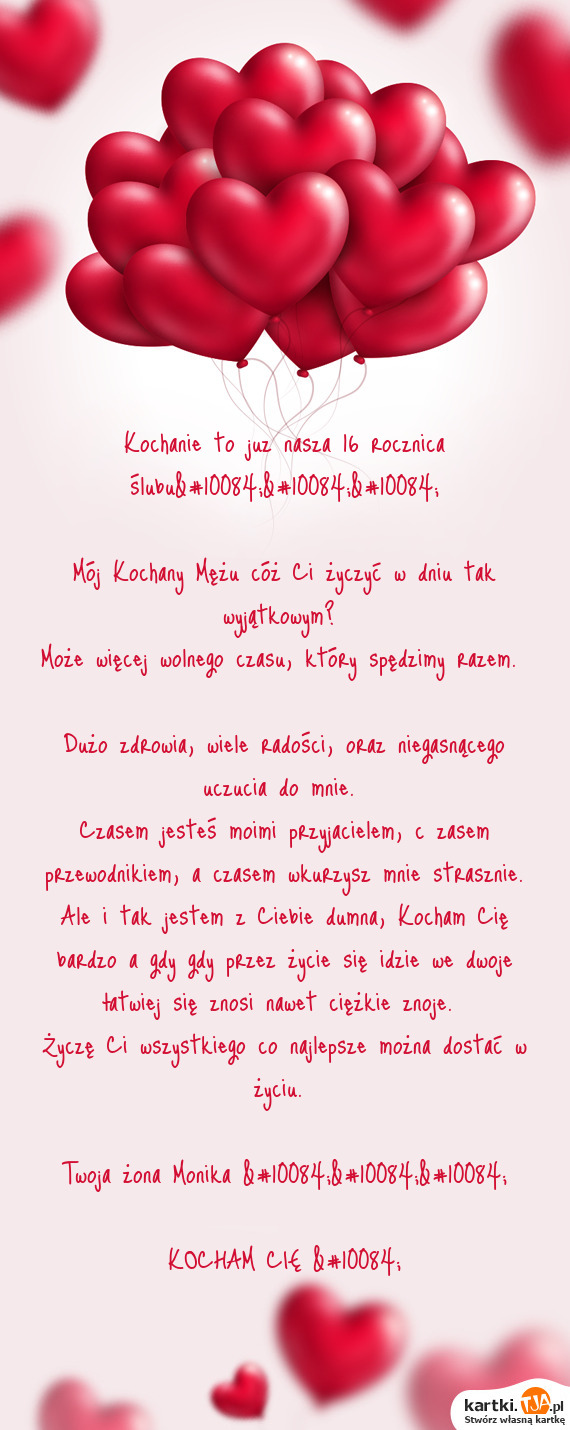 Kochanie to juz nasza 16 rocznica
ślubu&#10084;&#10084;&#10084;
Mój Kochany Mężu cóż Ci życzyć w dniu tak
wyjątkowym?
Może więcej wolnego czasu, który spędzimy razem.
Dużo zdrowia, wiele radości, oraz niegasnącego
uczucia do mnie.
Czasem jesteś moimi przyjacielem, c zasem
przewodnikiem, a czasem wkurzysz mnie strasznie.
Ale i tak jestem z Ciebie dumna, Kocham Cię
bardzo a gdy gdy przez życie się idzie we dwoje
łatwiej się znosi nawet ciężkie znoje.
Życzę Ci wszystkiego co najlepsze można dostać w
życiu.
Twoja żona Monika &#10084;&#10084;&#10084;
KOCHAM CIĘ &#10084;
kartki.TJA.pl
Stwórz własną kartkę